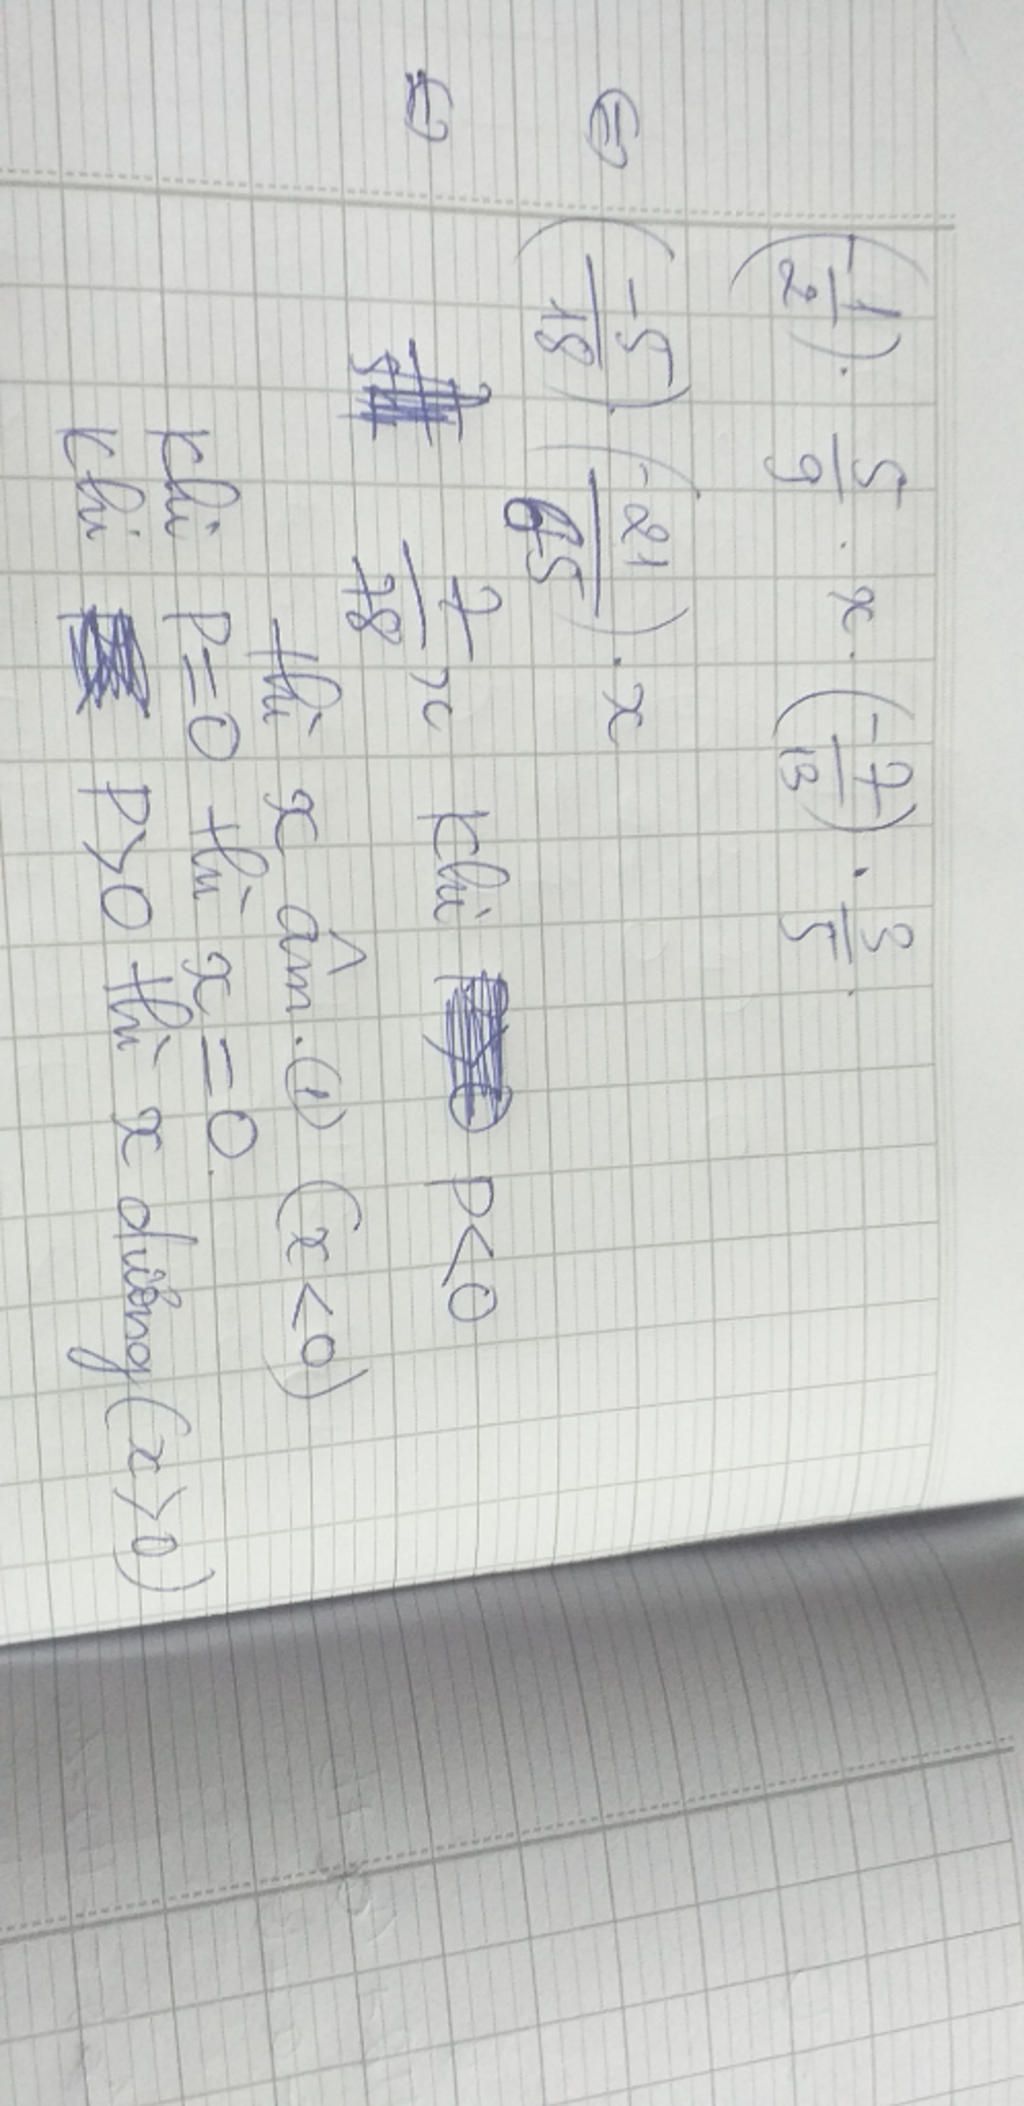 (-1/2) . 5/9 . x . (-7/13) . 3/5
⇔ (-5/18) . (-21/65) . x
⇔ 7/78 x khi P<0
thì x âm. ① (x<0)
khi P=0 thì x=0.
khi P>0 thì x dương (x>0)